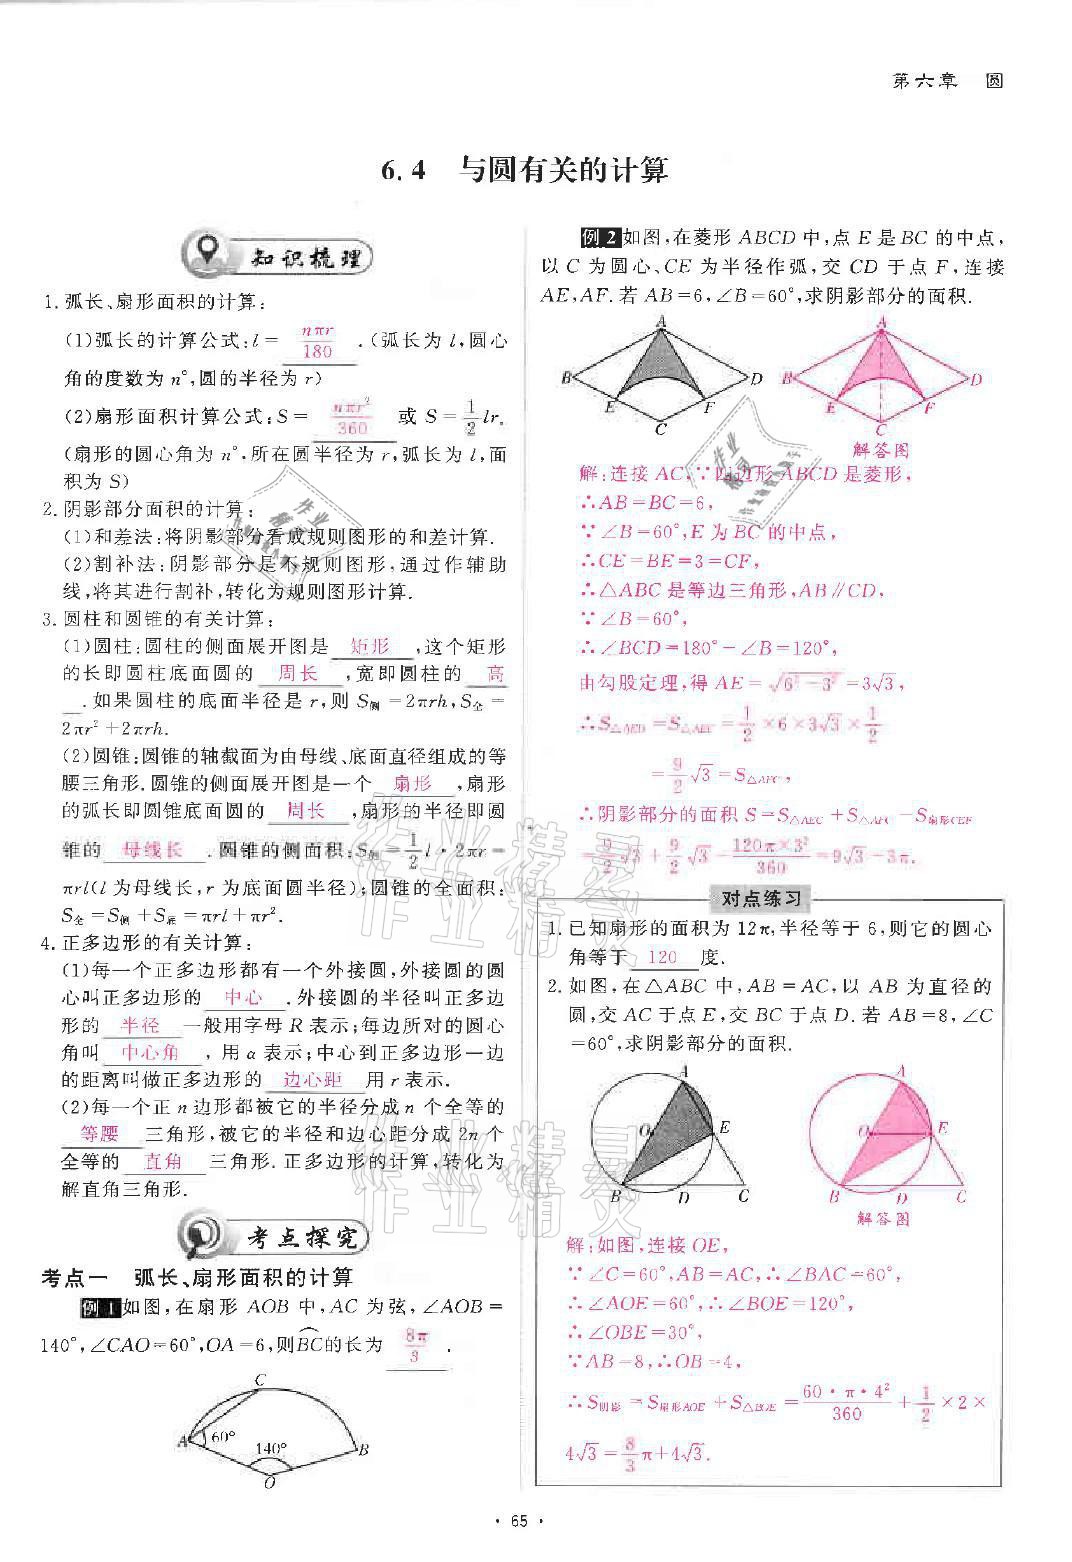 第六章 圆
6.4 与圆有关的计算
知识梳理
1.弧长、扇形面积的计算:
(1)弧长的计算公式:l= nπr/180 .(弧长为 l,圆心
角的度数为 n°,圆的半径为 r)
(2)扇形面积计算公式:S= nπr²/360 或 S=1/2 lr.
(扇形的圆心角为 n°,所在圆半径为 r,弧长为 l,面
积为 S)
2.阴影部分面积的计算:
(1)和差法:将阴影部分看成规则图形的和差计算.
(2)割补法:阴影部分是不规则图形,通过作辅助
线,将其进行割补,转化为规则图形计算.
3.圆柱和圆锥的有关计算:
(1)圆柱:圆柱的侧面展开图是 矩形 ,这个矩形
的长即圆柱底面圆的 周长 ,宽即圆柱的 高
.如果圆柱的底面半径是 r,则 S侧=2πrh,S全=
2πr²+2πrh.
(2)圆锥:圆锥的轴截面为由母线、底面直径组成的等
腰三角形.圆锥的侧面展开图是一个 扇形 ,扇形
的弧长即圆锥底面圆的 周长 ,扇形的半径即圆
锥的 母线长 .圆锥的侧面积:S侧=1/2 l·2πr=
πrl(l 为母线长,r 为底面圆半径);圆锥的全面积:
S全=S侧+S底=πrl+πr².
4.正多边形的有关计算:
(1)每一个正多边形都有一个外接圆,外接圆的圆
心叫正多边形的 中心 .外接圆的半径叫正多边
形的 半径 一般用字母 R 表示;每边所对的圆心
角叫 中心角 , 用 α 表示;中心到正多边形一边
的距离叫做正多边形的 边心距 用 r 表示.
(2)每一个正 n 边形都被它的半径分成 n 个全等的
等腰 三角形,被它的半径和边心距分成 2n 个
全等的 直角 三角形.正多边形的计算,转化为
解直角三角形.
考点探究
考点一 弧长、扇形面积的计算
例1 如图,在扇形 AOB 中,AC 为弦,∠AOB=
140°,∠CAO=60°,OA=6,则BC⌒的长为 8π/3 .
C
A 60° 140° B
O
例2 如图,在菱形 ABCD 中,点 E 是 BC 的中点,
以 C 为圆心、CE 为半径作弧,交 CD 于点 F,连接
AE,AF.若 AB=6,∠B=60°,求阴影部分的面积.
A A
B D B D
E F E F
C C
解答图
解:连接 AC,∵四边形 ABCD 是菱形,
∴AB=BC=6,
∵∠B=60°,E 为 BC 的中点,
∴CE=BE=3=CF,
∴△ABC 是等边三角形,AB∥CD,
∵∠B=60°,
∴∠BCD=180°-∠B=120°,
由勾股定理,得 AE=√(6²-3²)=3√3,
∴S△AEB=S△AEC=1/2×6×3√3×1/2
=9/2√3=S△AFC,
∴阴影部分的面积 S=S△AEC+S△AFC-S扇形CEF
=9/2√3+9/2√3-120π×3²/360=9√3-3π.
对点练习
1.已知扇形的面积为 12π,半径等于 6,则它的圆心
角等于 120 度.
2.如图,在△ABC 中,AB=AC,以 AB 为直径的
圆,交 AC 于点 E,交 BC 于点 D.若 AB=8,∠C
=60°,求阴影部分的面积.
A A
O E O E
B D C B D C
解答图
解:如图,连接 OE,
∵∠C=60°,AB=AC,∴∠BAC=60°,
∴∠AOE=60°,∴∠BOE=120°,
∴∠OBE=30°,
∵AB=8,∴OB=4,
∴S阴影=S扇形AOE+S△BOE=60·π·4²/360+1/2×2×
4√3=8/3π+4√3.
·65·
作业精灵
作业精灵
作业精灵
作业精灵